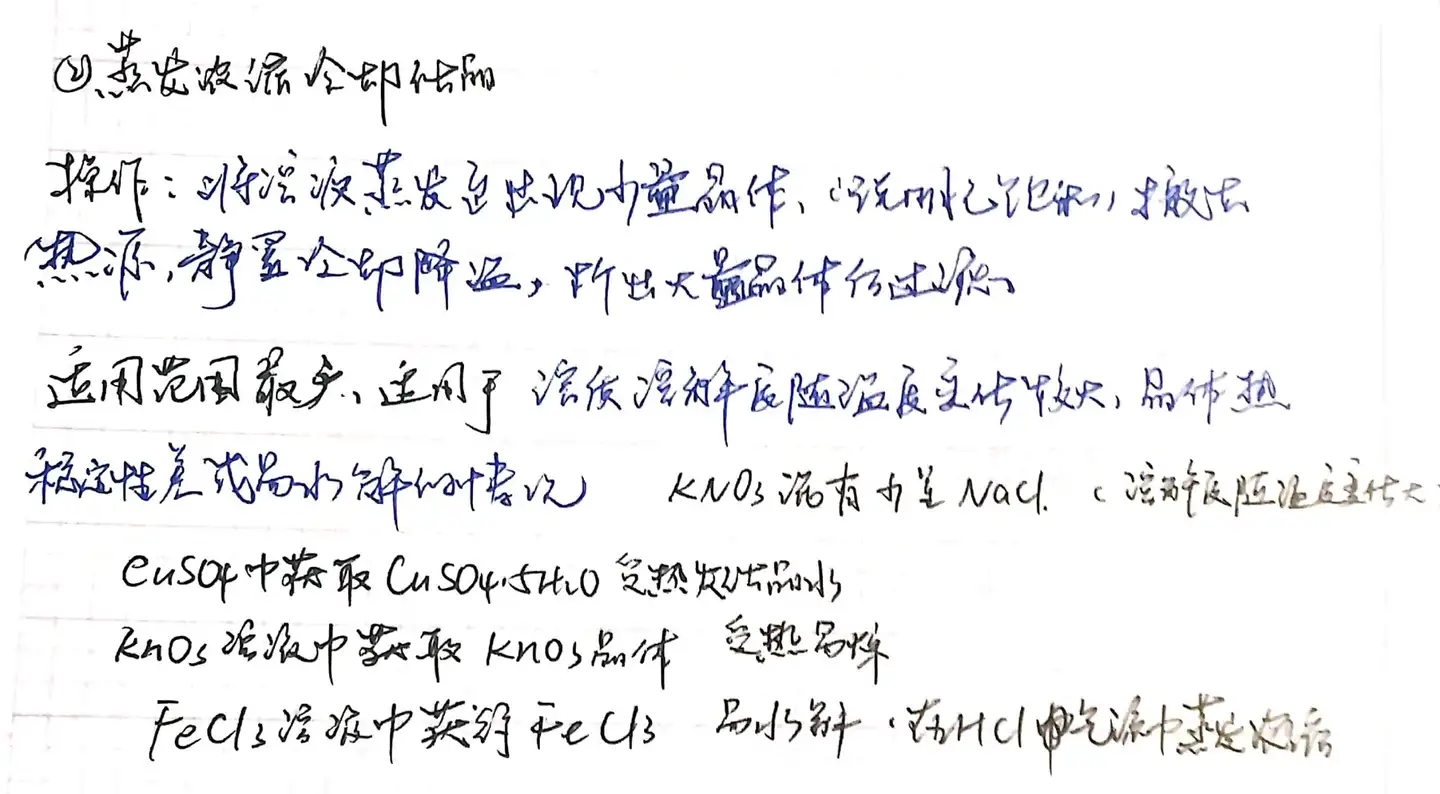 ②蒸发浓缩冷却结晶
操作：将溶液蒸发至出现少量晶体、(说明已饱和)，撤去
热源，静置冷却降温，析出大量晶体后过滤。
适用范围最多、适用于 溶质溶解度随温度变化较大，晶体热
稳定性差或易水解的情况 KNO3混有少量NaCl. (溶解度随温度变化大
CuSO4中获取CuSO4·5H2O 受热失结晶水
KnO3溶液中获取 KnO3晶体 受热易爆
FeCl3溶液中获得FeCl3 易水解．在HCl气流中蒸发浓缩